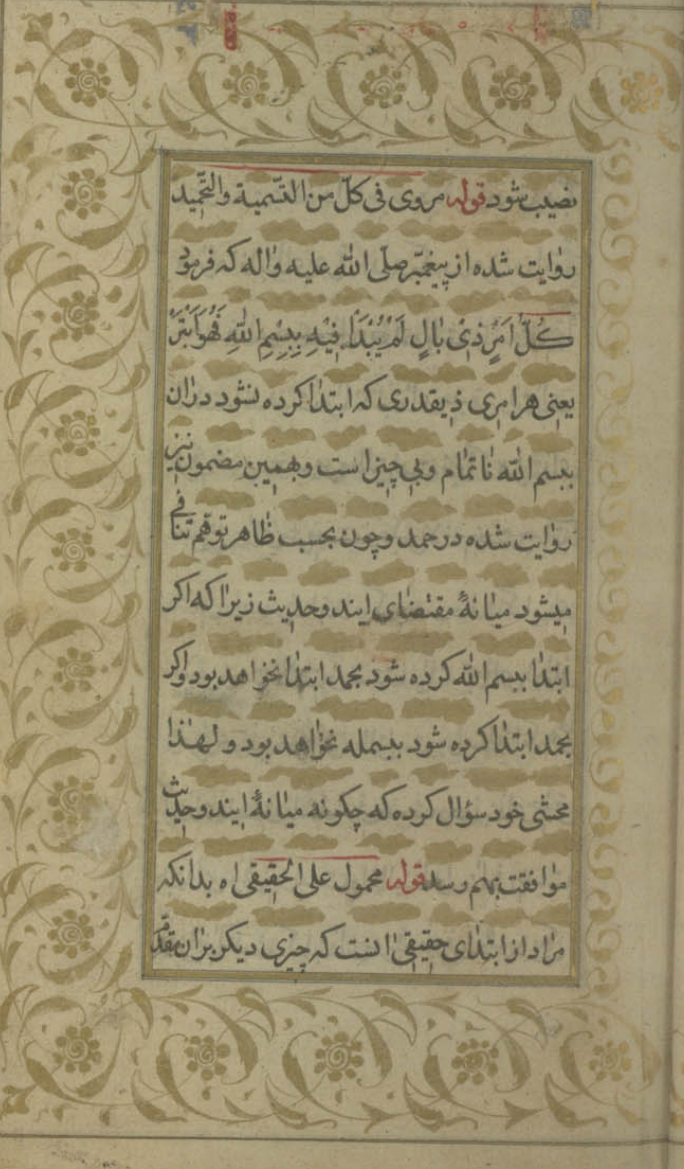 نصیب شود قوله مروی فی کلّ من التّسمیة والتّحمید
روایت شده از پیغمبر صلّی الله علیه واله که فرمود
کُلّ اَمْرٍ ذِیْ بٰالٍ لَمْ یُبْدَأ فِیْهِ بِبِسْمِ اللّٰهِ فَهُوَ اَبْتَرْ
یعنی هر امری ذیقدری که ابتدا کرده نشود دران
ببسم الله ناتمام وبی چیز است وبهمین مضمون نیز
روایت شده در حمد وچون بحسب ظاهر توهّم تنافی
میشود میانهٔ مقتضای ایندوحدیث زیرا که اکر
ابتدا ببسم الله کرده شود بحمد ابتدا نخواهد بود واکر
بحمد ابتدا کرده شود ببسمله نخواهد بود و لهذا
محشی خود سؤال کرده که چکونه میانهٔ ایندوحدیث
موافقت بهم رسد قوله محمول علی الحقیقی اه بدانکه
مراد از ابتدای حقیقی انست که چیزی دیکر بران مقدّم